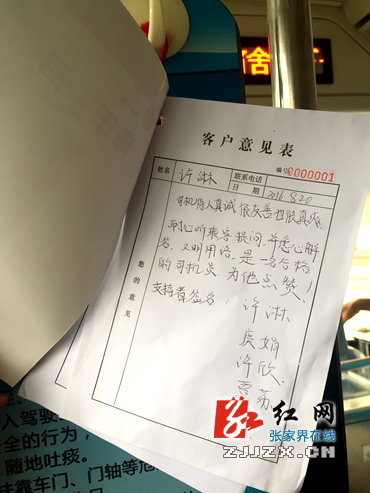 客户意见表
编号0000001
姓名 许淋 联系电话
日期 2016.8.20
您的意见
司机待人真诚 很友善也很真爽,
耐心听乘客提问,并悉心解
答,文明用语,是一名合格
的司机员,为他点赞!
支持者签名:许淋
虞娟
许欣
红网
张家界在线
ZJJZX.CN
人驾驶
全的行为,
随地吐痰。
靠车门、门轴等危